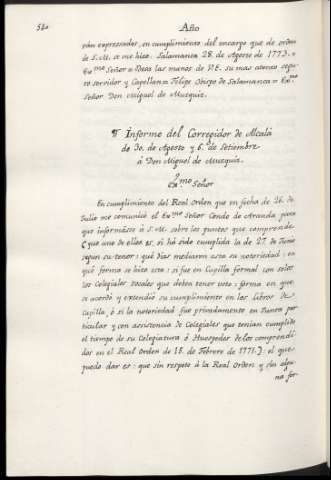 580
Año
rán expressadas, en cumplimiento del encargo que de orden
de S. M. se me hizo. Salamanca 28. de Agosto de 1773. =
Exmo Señor = Besa las manos de V.E. su mas atento segu-
ro servidor y Capellan = Felipe Obispo de Salamanca = Exmo
Señor Don Miguel de Muzquiz.
¶ Informe del Corregidor de Alcalá
de 30. de Agosto y 6. de Setiembre
á Don Miguel de Muzquiz.
Exmo Señor
En cumplimiento del Real Orden que en fecha de 26. de
Julio me comunicó el Exmo Señor Conde de Aranda para
que informásse á S. M. sobre los puntos que comprende
(que uno de ellos es, si há sido cumplida la de 27. de Junio
segun su tenor; qué dias mediaron esta su notoriedad; en
qué forma se hizo esta; si fue en Capilla formal con solos
los Colegiales vocales que deben tener voto; forma en que
se acordó y extendió su cumplimiento en los libros de
Capilla, ó si la notoriedad fue privadamente en Junta par-
ticular y con assistencia de Colegiales que tenían cumplido
el tiempo de su Colegiatura ó Huespedes de los comprendi-
dos en el Real Orden de 15. de Febrero de 1771.): el que
puedo dar es: que sin respeto á la Real Orden y sin algu-
na for-